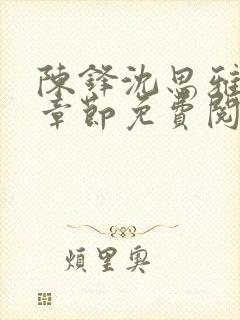 陳鋒沈思雅
章節免費閱
煩里奧